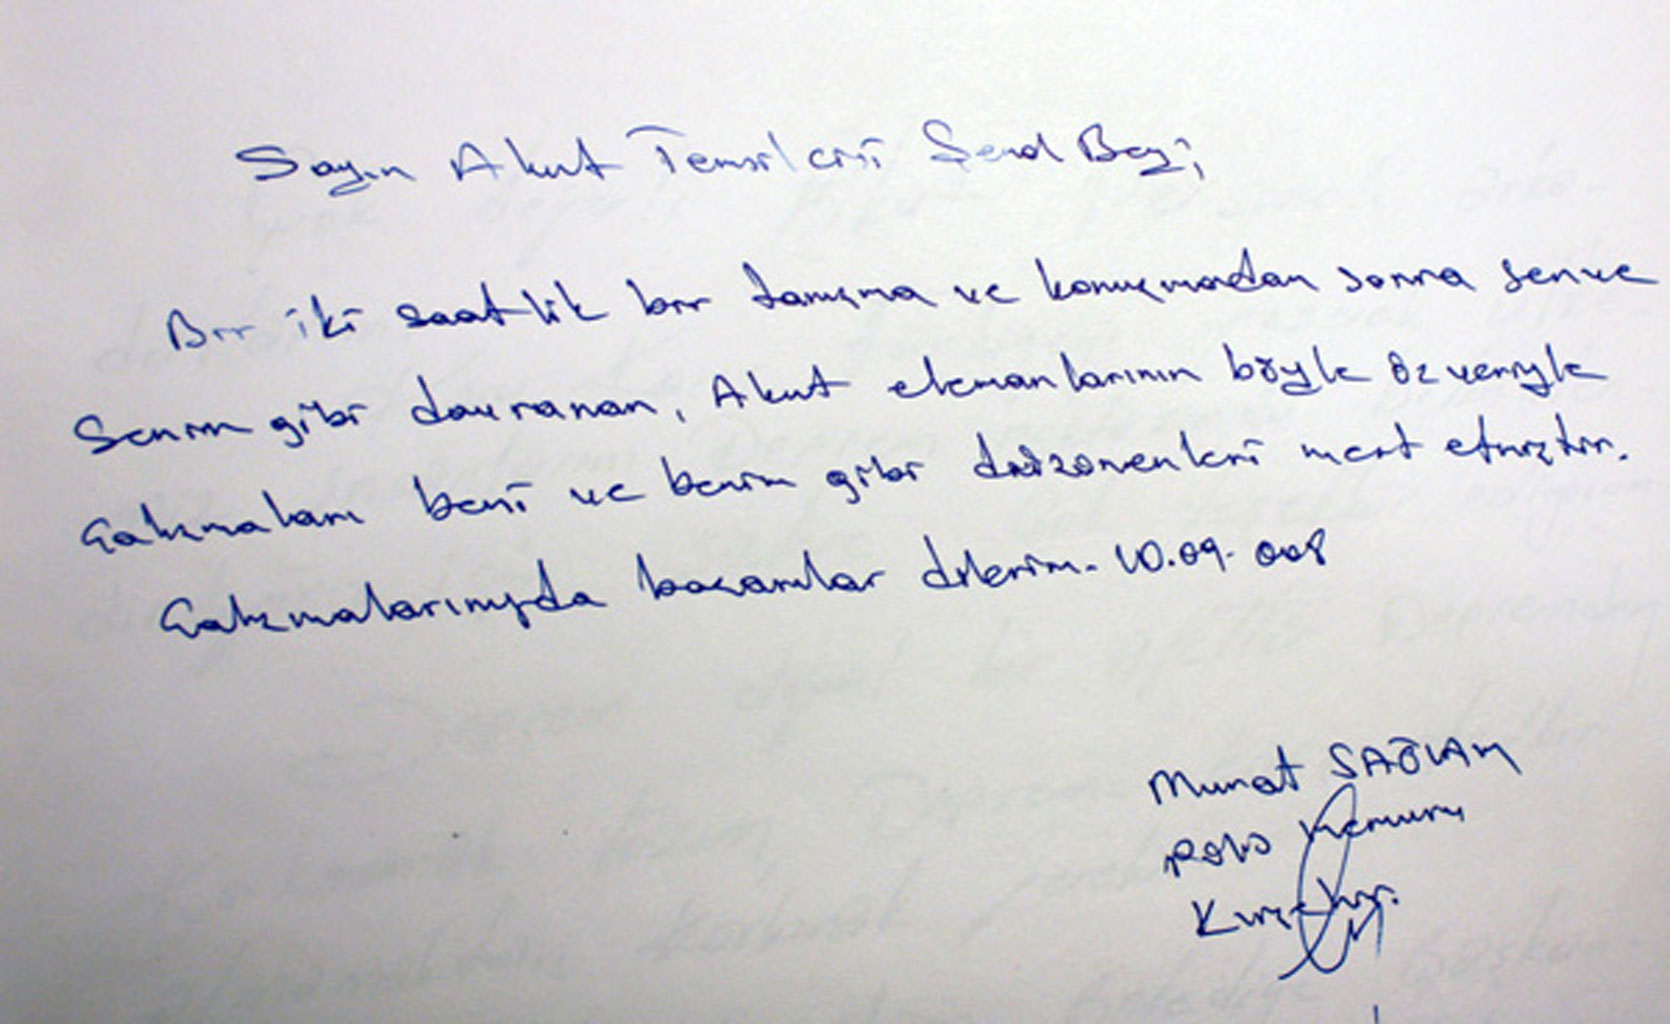 Sayın Akut Temsilcisi Bey;
Bir iki saatlik bir tanışma ve konuşmadan sonra sen ve
Senin gibi davranan, Akut elemanlarının böyle özveriyle
Çalışmaları beni ve benim gibi mest etmiştir.
Çalışmalarınızda başarılar dilerim. 10.09.008
Murat SAĞLAM
Polis Memuru
Kırşehir.